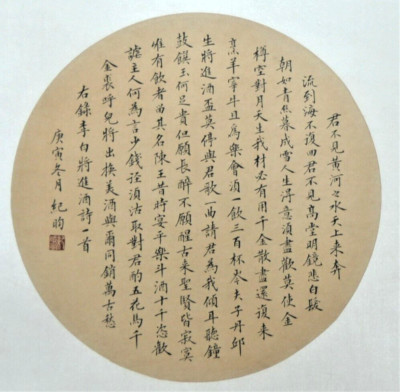 君不見黃河之水天上来奔
流到海不復回君不見高堂明鏡悲白髮
朝如青絲暮成雪人生得意須盡歡莫使金
樽空對月天生我材必有用千金散盡還復来
烹羊宰牛且為樂會須一飲三百杯岑夫子丹邱
生將進酒盃莫停與君歌一曲請君為我傾耳聽鐘
鼓饌玉何足貴但願長醉不願醒古来聖賢皆寂寞
惟有飲者留其名陳王昔時宴平樂斗酒十千恣歡
謔主人何為言少錢徑須沽取對君酌五花馬千
金裘呼兒將出換美酒與爾同銷萬古愁
右錄李白將進酒詩一首
庚寅冬月 紀昀